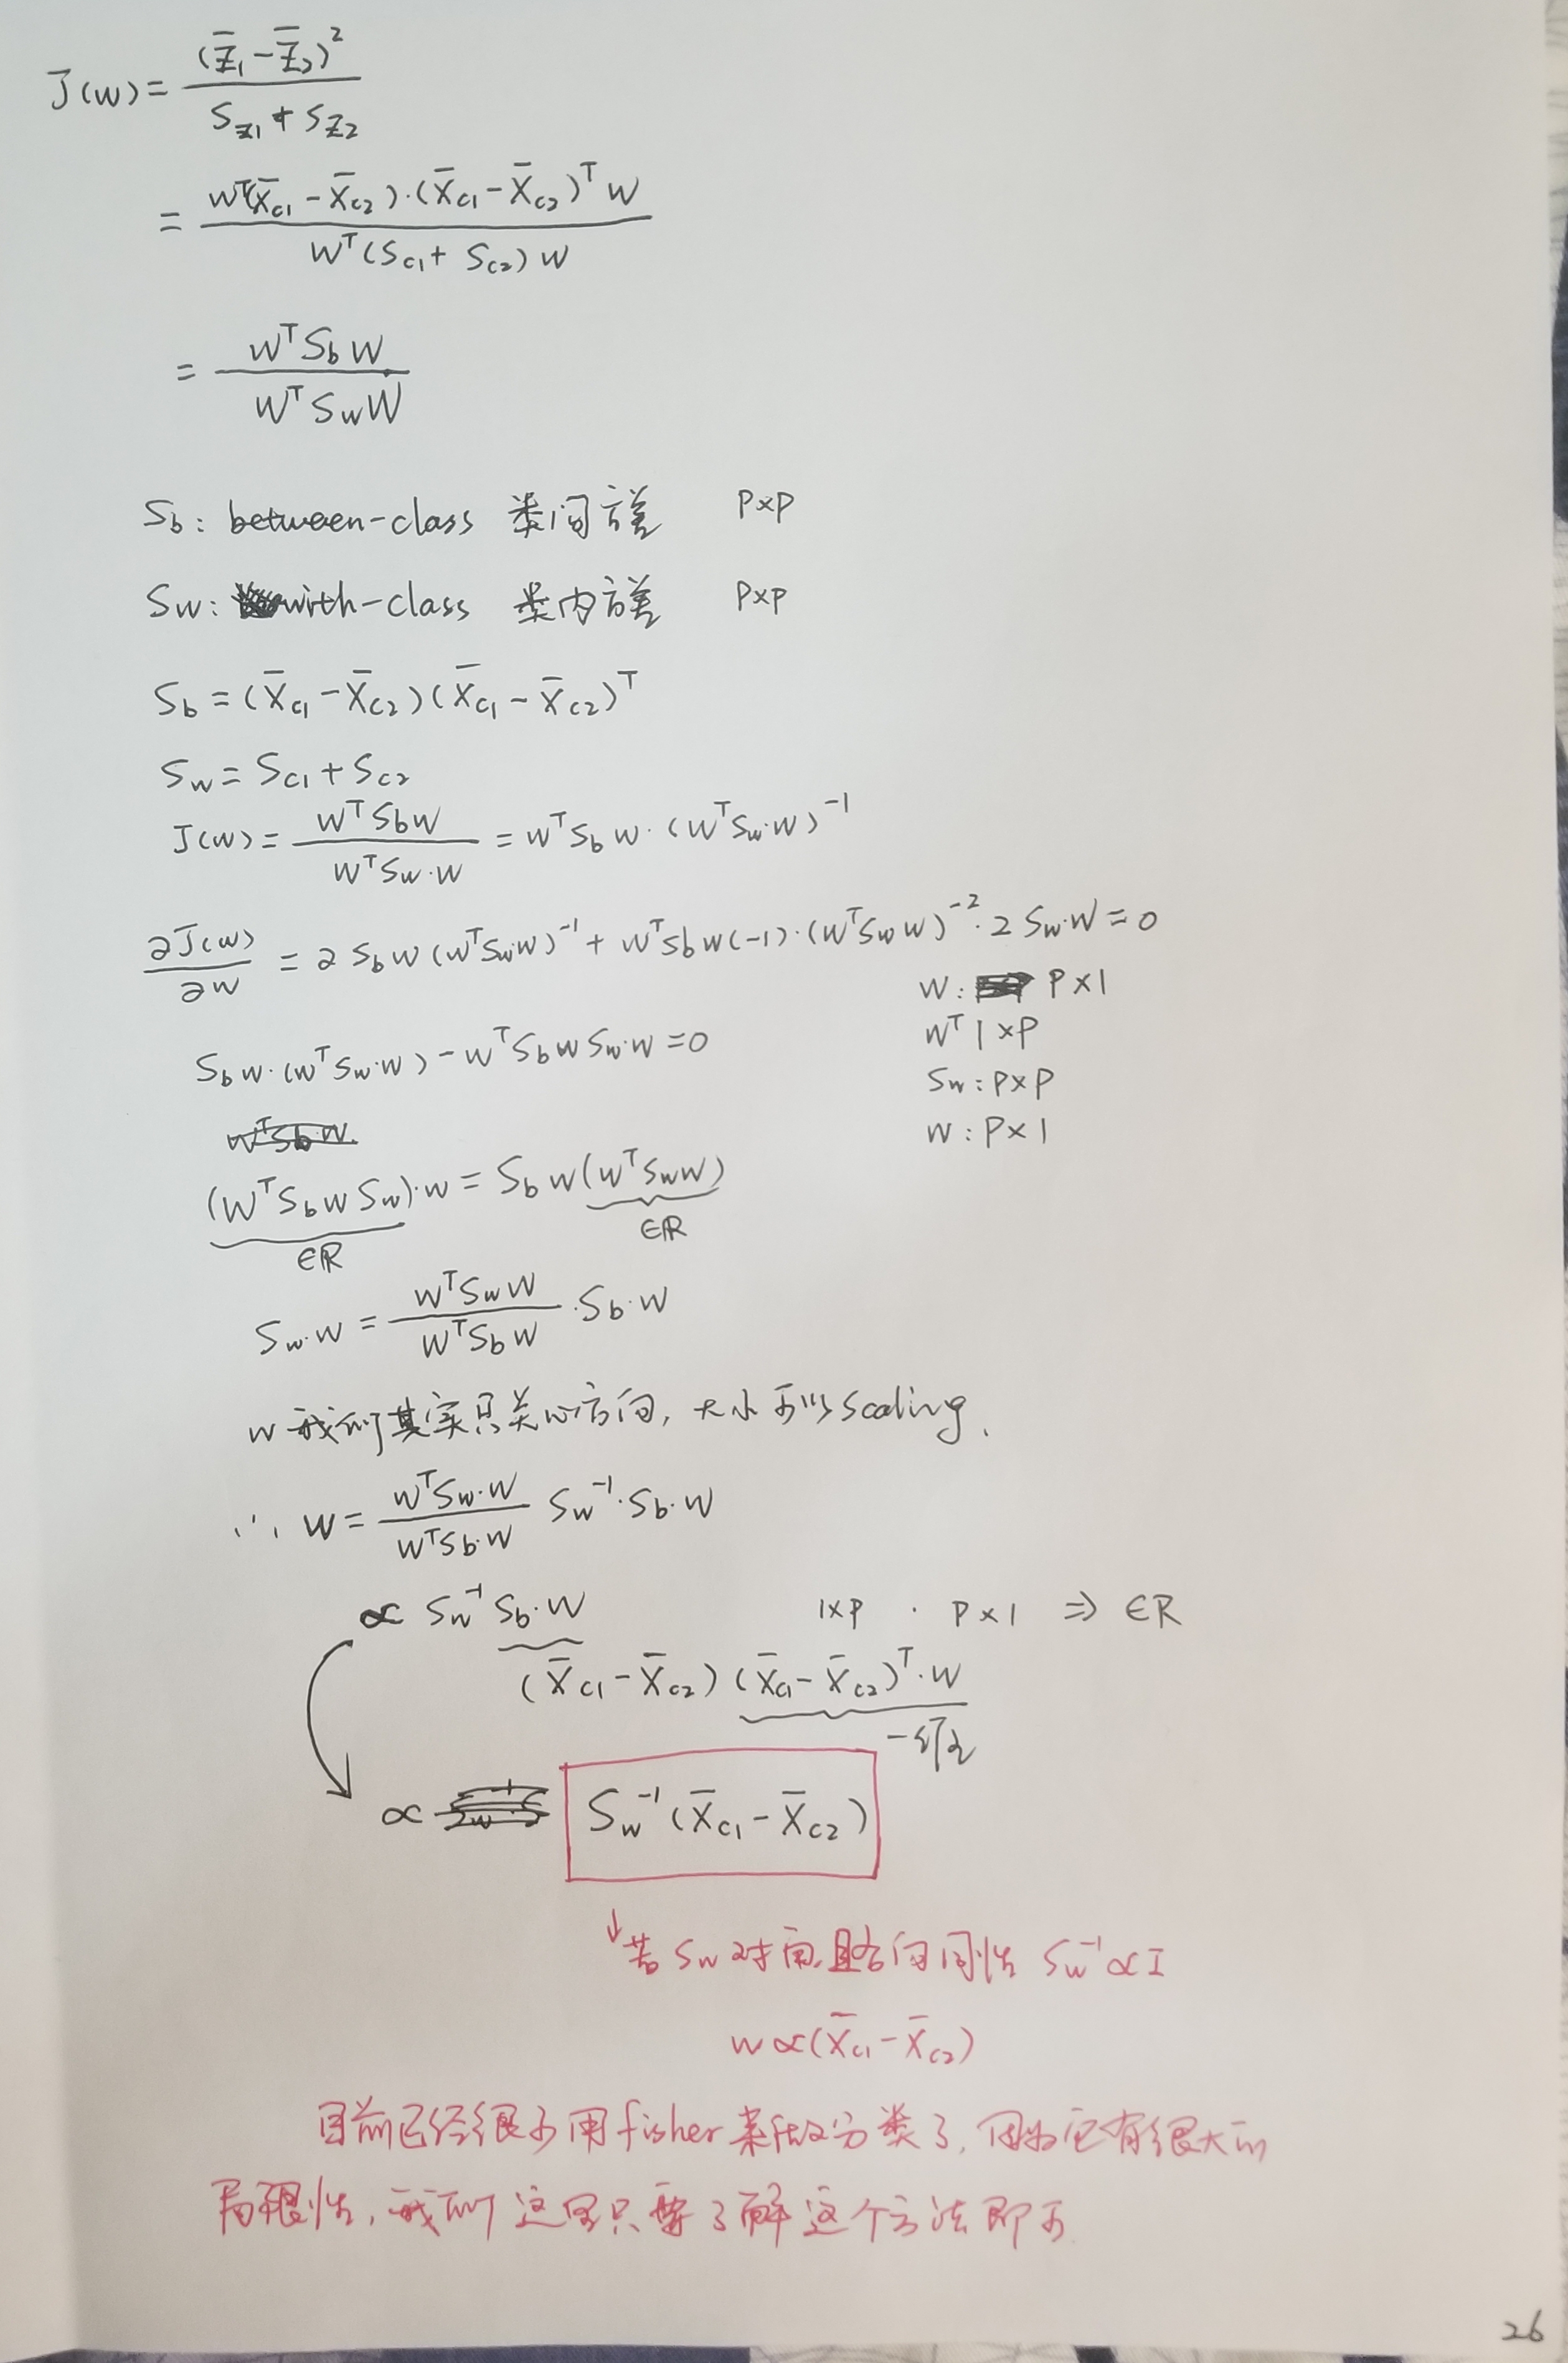 J(w) = (z̄₁ - z̄₂)² / (S_z₁ + S_z₂)
= wᵀ(x̄_c₁ - x̄_c₂)·(x̄_c₁ - x̄_c₂)ᵀ w / wᵀ(S_c₁ + S_c₂) w
= wᵀ S_b w / wᵀ S_w w
S_b: between-class 类间方差 P×P
S_w: with-class 类内方差 P×P
S_b = (x̄_c₁ - x̄_c₂)(x̄_c₁ - x̄_c₂)ᵀ
S_w = S_c₁ + S_c₂
J(w) = wᵀ S_b w / wᵀ S_w·w = wᵀ S_b w·(wᵀ S_w·w)⁻¹
∂J(w)/∂w = 2 S_b w (wᵀ S_w·w)⁻¹ + wᵀ S_b w (-1)·(wᵀ S_w w)⁻²·2 S_w·w = 0
w: P×1
S_b w·(wᵀ S_w·w) - wᵀ S_b w S_w·w = 0
wᵀ 1×P
S_w: P×P
wᵀ S_b w
w: P×1
(wᵀ S_b w S_w)·w = S_b w (wᵀ S_w w)
∈ℝ ∈ℝ
S_w·w = wᵀ S_w w / wᵀ S_b w · S_b·w
w 我们其实只关心方向, 大小可以scaling.
∴ w = wᵀ S_w·w / wᵀ S_b·w S_w⁻¹·S_b·w
∝ S_w⁻¹ S_b·w 1×P · P×1 ⇒ ∈R
(x̄_c₁ - x̄_c₂)(x̄_c₁ - x̄_c₂)ᵀ·w
∝ S_w⁻¹(x̄_c₁ - x̄_c₂)
↓若 S_w 对角,且各向同性 S_w⁻¹ ∝ I
w ∝ (x̄_c₁ - x̄_c₂)
目前已经很少用fisher来做分类了, 因为它有很大的
局限性, 我们这里只要了解这个方法即可
26